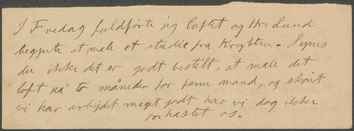 I Fredag fuldførte jeg loftet og Hr Lund
begyndte at male et studie fra Krybben. Synes
du ikke det er godt bestilt, at male det
loft på to måneder for denne mand, og skønt
vi har arbejdet meget godt har vi dog ikke
forhastet os.